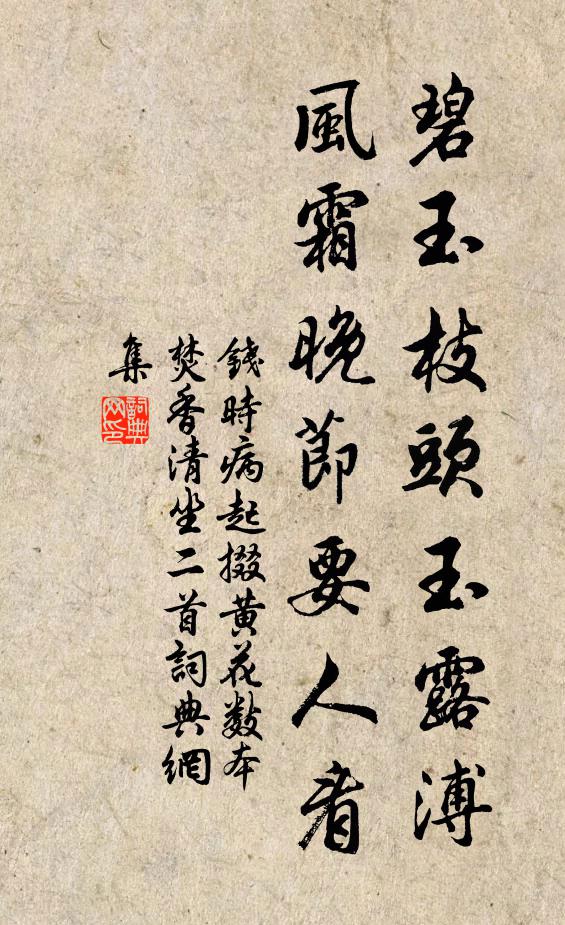 碧玉枝頭玉露溥
風霜晚節要人看
錢時病起掇黄花數本
焚香清坐二首詞典網
集
詞典
网印